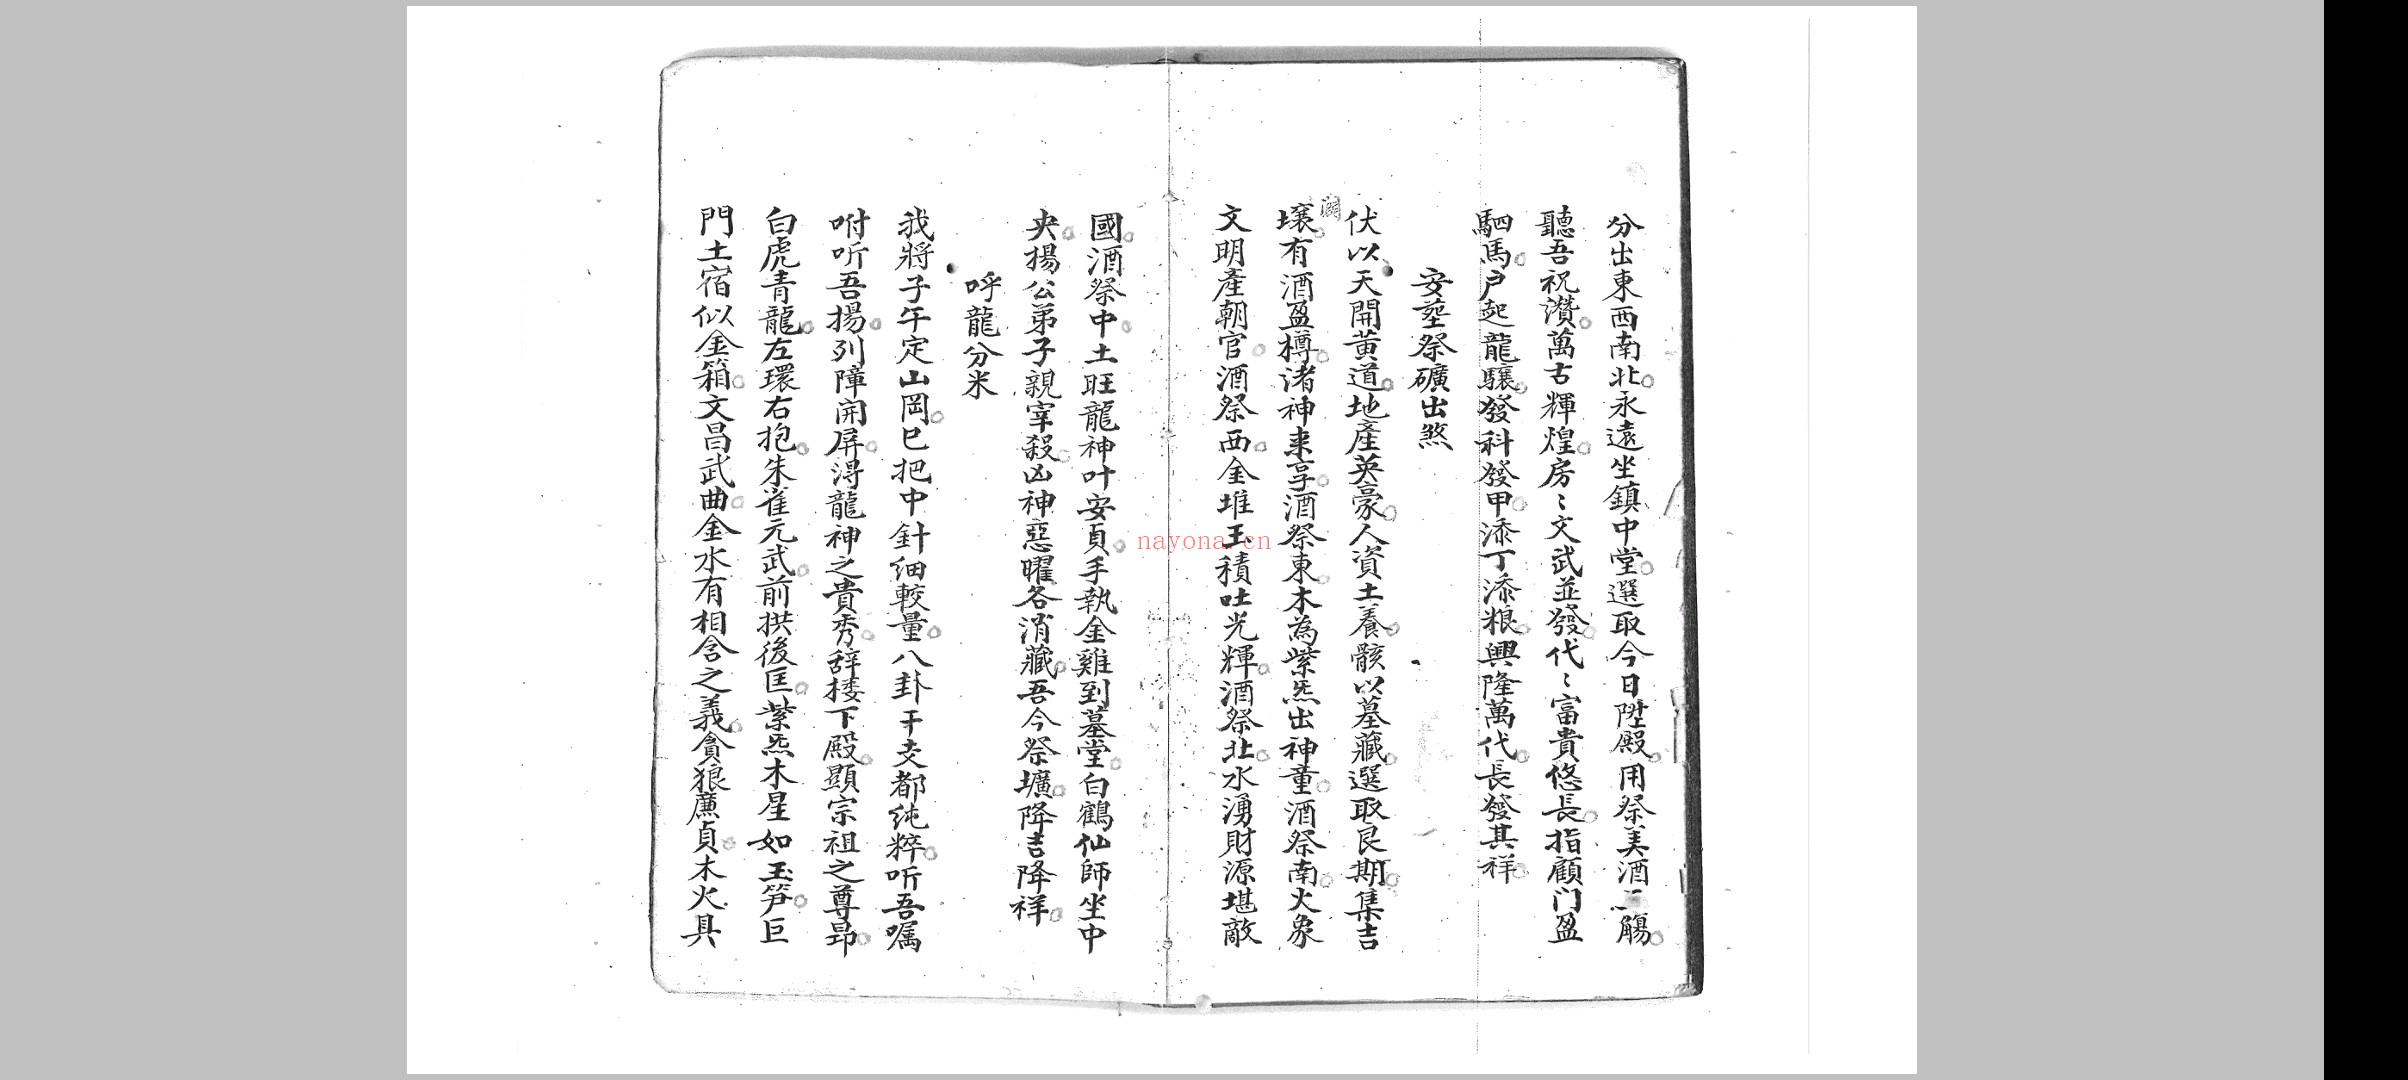 分出東西南北永遠坐鎮中堂選取今日陞殿用祭美酒三觴
聽吾祝讚萬古輝煌房〻文武並發代〻富貴悠長指顧门盈
駟馬户起龍驤發科發甲添丁添粮興隆萬代長發其祥
安塋祭礦出煞
伏以天開黄道地產英豪人資土養骸以墓藏選取良期集吉
壙有酒盈樽渚神来享酒祭東木為紫炁出神童酒祭南火象
文明產朝官酒祭西金堆玉積吐光輝酒祭北水湧財源堪敵
國酒祭中土旺龍神叶安貞手執金雞到墓堂白鶴仙師坐中
央揚公弟子親宰殺凶神惡曜各消藏吾今祭壙降吉降祥
呼龍分米
我將子午定山岡巳把中針细較量八卦干支都纯粹听吾嘱
咐听吾揚列障開屏淂龍神之貴秀辞楼下殿顯宗祖之尊昂
白虎青龍左環右抱朱雀元武前拱後匡紫炁木星如玉笋巨
門土宿似金箱文昌武曲金水有相含之義貪狼廉貞木火具
nayona.cn